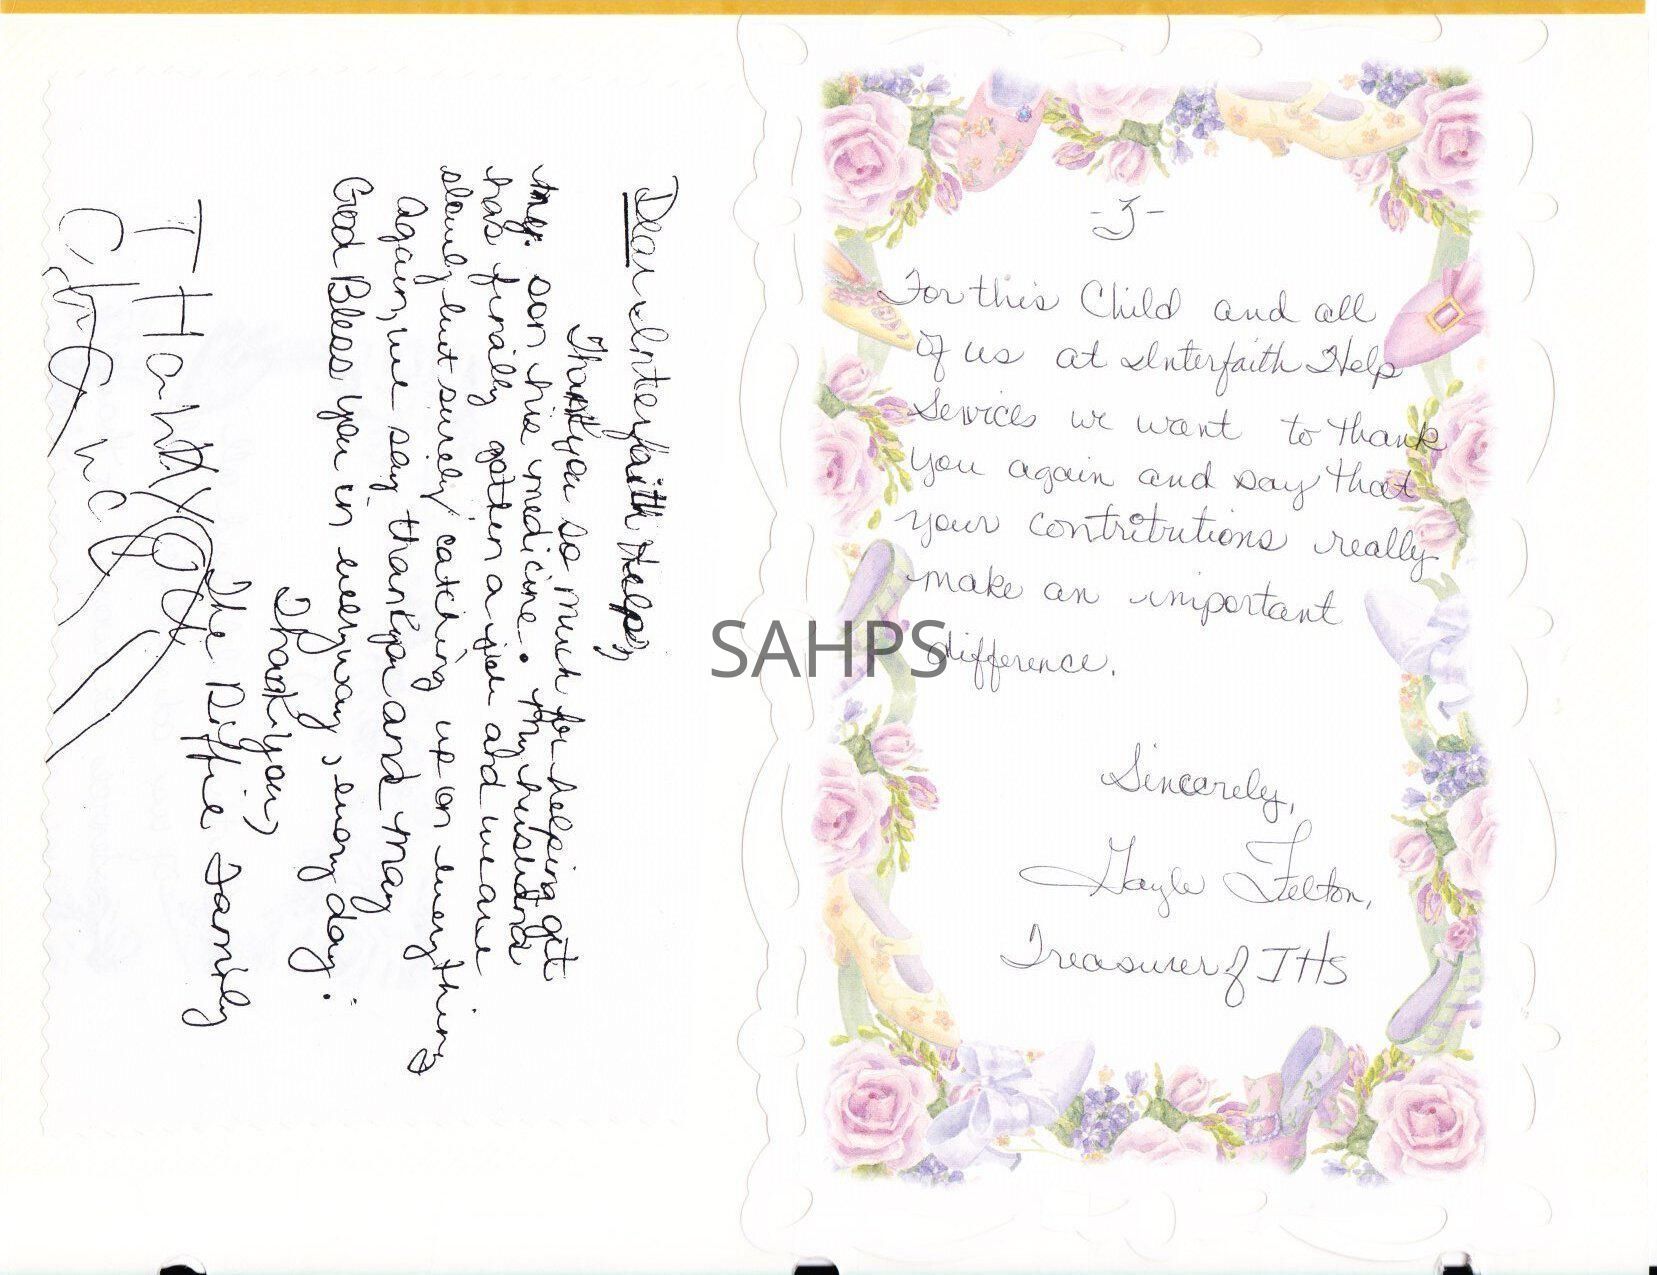 Dear Interfaith Help,
Thankyou so much for helping get
my son his medicine. My husband
has finally gotten a job and we are
slowly but surely catching up on everything
again, we say thankyou and may
God Bless you in everyway, everyday.
Thankyou,
The Diffie Family
THank you
-3-
For this Child and all
of us at Interfaith Help
Services we want to thank
you again and say that
your contritutions really
make an important
difference.
Sincerely,
Gayle Felton,
Treasurer of IHS
SAHPS